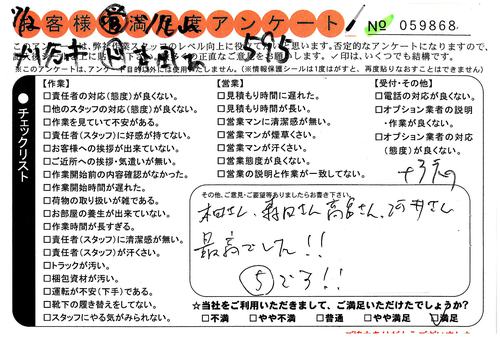 お客様満足度アンケート
№ 059868
このアンケートは、弊社作業スタッフのレベル向上に役立て
いと思います。否定的なアンケートになりますので、
595
※このアンケートは、アンケート目的以外には使用いたしません。(※情報保護シールは1度はがすと、再度貼りなおすことはできません)
チェックリスト
【作業】
□責任者の対応(態度)が良くない。
□他のスタッフの対応(態度)が良くない。
□作業を見ていて不安がある。
□責任者(スタッフ)に好感が持てない。
□お客様への挨拶が出来ていない。
□ご近所への挨拶・気遣いが無い。
□作業開始前の内容確認がなかった。
□作業開始時間が遅れた。
□荷物の取り扱いが雑である。
□お部屋の養生が出来ていない。
□作業時間が長すぎる。
□責任者(スタッフ)に清潔感が無い。
□責任者(スタッフ)が汗くさい。
□トラックが汚い。
□梱包資材が汚い。
□運転が不安(下手)である。
□靴下の履き替えをしてない。
□スタッフにやる気がみられない。
【営業】
□見積もり時間に遅れた。
□見積もり時間が長い。
□営業マンに清潔感が無い。
□営業マンが煙草くさい。
□営業マンが汗くさい。
□営業態度が良くない。
□営業の説明と作業が一致してない。
【受付・その他】
□電話の対応が良くない。
□オプション業者の説明
・作業が良くない。
□オプション業者の対応
(態度)が良くない。
その他、ご意見・ご要望等ありましたらお書き下さい。
森田さん 高宮さん、河井さん
最高でした!!
⑤です!!
☆当社をご利用いただきまして、ご満足いただけたでしょうか?
□不満 □やや不満 □普通 □やや満足 □満足